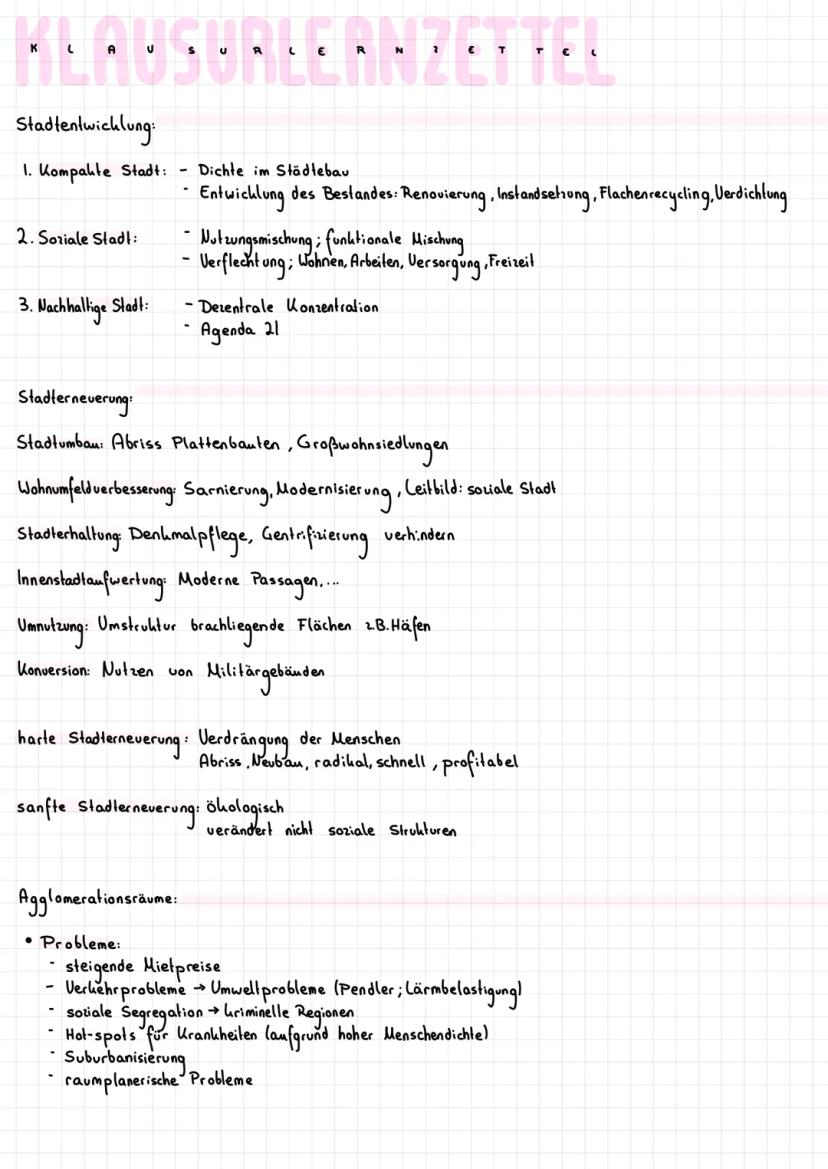 KLAUSURLERNZETTEL
K L A U S U R L E R N Z E T T E L
Stadtentwicklung:
1. Kompakte Stadt: - Dichte im Städtebau
- Entwicklung des Bestandes: Renovierung, Instandsetzung, Flachenrecycling, Verdichtung
2. Soziale Stadt: - Nutzungsmischung; funktionale Mischung
- Verflechtung; Wohnen, Arbeiten, Versorgung, Freizeit
3. Nachhaltige Stadt: - Dezentrale Konzentration
- Agenda 21
Stadterneuerung:
Stadtumbau: Abriss Plattenbauten, Großwohnsiedlungen
Wohnumfeldverbesserung: Sarnierung, Modernisierung, Leitbild: soziale Stadt
Stadterhaltung: Denkmalpflege, Gentrifizierung verhindern
Innenstadtaufwertung: Moderne Passagen,...
Umnutzung: Umstruktur brachliegende Flächen z.B. Häfen
Konversion: Nutzen von Militärgebänden
harte Stadterneuerung: Verdrängung der Menschen
Abriss, Neubau, radikal, schnell, profitabel
sanfte Stadterneuerung: ökologisch
verändert nicht soziale Strukturen
Agglomerationsräume:
• Probleme:
- steigende Mietpreise
- Verkehrprobleme → Umweltprobleme (Pendler; Lärmbelastigung)
- soziale Segregation → kriminelle Regionen
- Hot-spots für Krankheiten (aufgrund hoher Menschendichte)
- Suburbanisierung
- raumplanerische Probleme